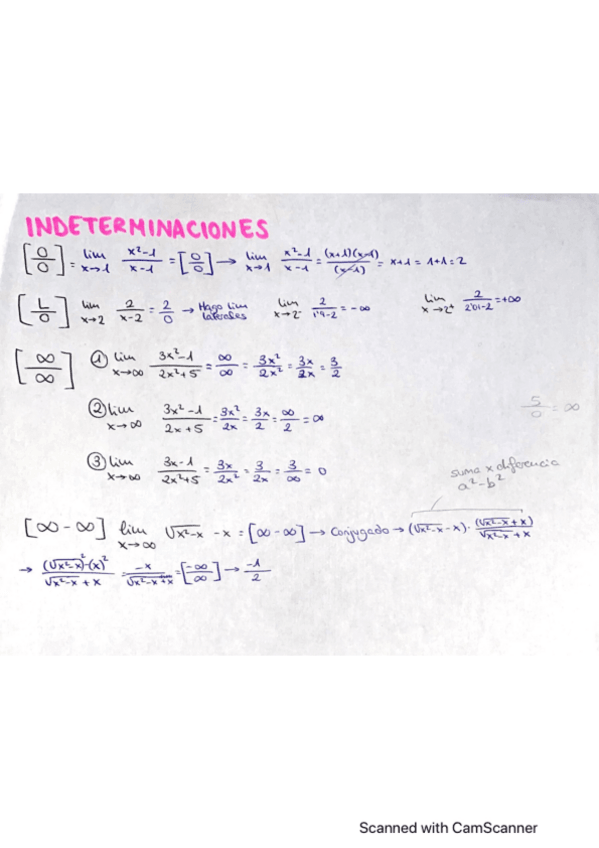 INDETERMINACIONES
[0/0] = lim x→1 x²-1/x-1 = [0/0] → lim x→1 x²-1/x-1 = (x+1)(x-1)/(x-1) = x+1 = 1+1 = 2
[L/0] lim x→2 2/x-2 = 2/0 → Hago lim laterales lim x→2⁻ 2/1'9-2 = -∞ lim x→2⁺ 2/2'01-2 = +∞
[∞/∞] ① lim x→∞ 3x²-1/2x²+5 = ∞/∞ = 3x²/2x² = 3x/2x = 3/2
② lim x→∞ 3x²-1/2x+5 = 3x²/2x = 3x/2 = ∞/2 = ∞
5/0 = ∞
③ lim x→∞ 3x-1/2x²+5 = 3x/2x² = 3/2x = 3/∞ = 0
suma x diferencia
a²-b²
[∞-∞] lim x→∞ √x²-x - x = [∞-∞] → Conjugado → (√x²-x - x) · (√x²-x + x)/√x²-x + x
→ (√x²-x)²-(x)²/√x²-x + x -x/√x²-x + x = [-∞/∞] → -1/2
Scanned with CamScanner